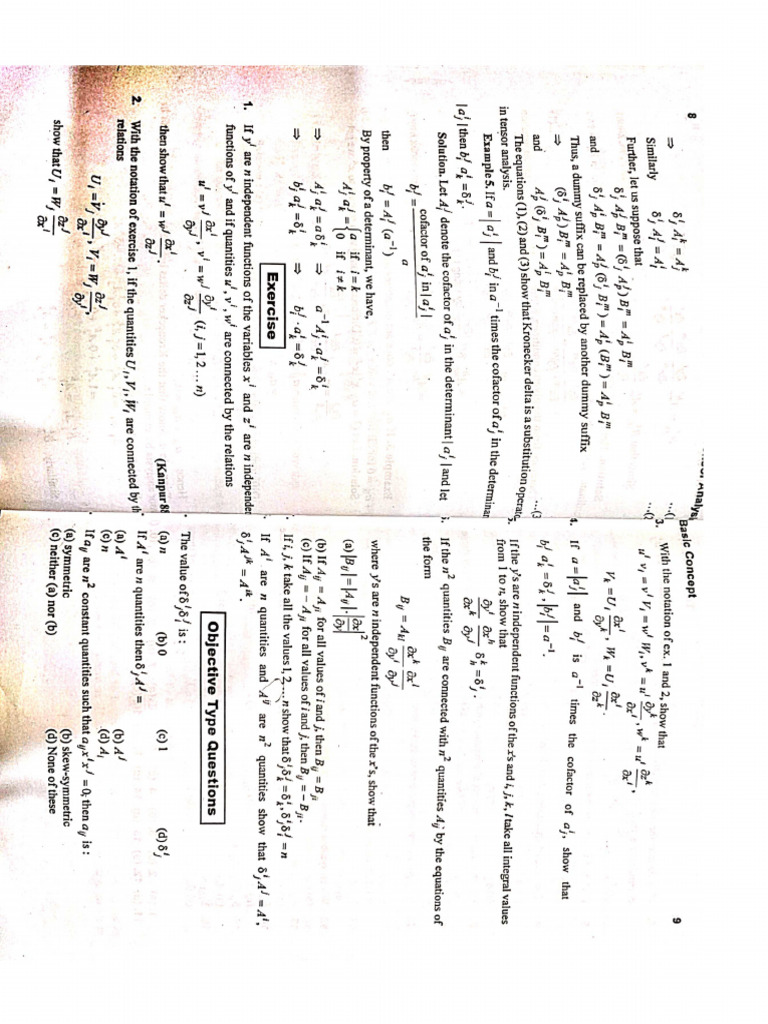 8
⇒ δ^i_j A^k_i = A^k_j
Similarly δ^i_j A^j_i = A^i_i
...(2
Further, let us suppose that
δ^i_j A^j_p B^m_i = (δ^i_j A^j_p) B^m_i = A^i_p B^m_i
and δ^i_j A^j_p B^m_i = A^j_p (δ^i_j B^m_i) = A^j_p (B^m_j) = A^i_p B^m_i
Thus, a dummy suffix can be replaced by another dummy suffix
⇒ (δ^i_j A^j_p) B^m_i = A^i_p B^m_i
and A^j_p (δ^i_j B^m_i) = A^i_p B^m_i ...(3
The equations (1), (2) and (3) show that Kronecker delta is a substitution operato
in tensor analysis.
Example 5. If a = |a^i_j| and b^j_i in a^{-1} times the cofactor of a^i_j in the determinan
|a^i_j| then b^j_i a^i_k = δ^j_k.
Solution. Let A^j_i denote the cofactor of a^i_j in the determinant |a^i_j| and let
b^j_i = cofactor of a^i_j in |a^i_j| / a
then b^j_i = A^j_i (a^{-1})
By property of a determinant, we have,
A^j_i a^i_k = { a if j = k
0 if i ≠ k
⇒ A^j_i a^i_k = a δ^j_k ⇒ a^{-1} A^j_i · a^i_k = δ^j_k
⇒ b^j_i a^i_k = δ^j_k ⇒ b^j_i · a^i_k = δ^j_k
Exercise
1. If y^i are n independent functions of the variables x^i and z^i are n independen
functions of y^i and if quantities u^i, v^i, w^i are connected by the relations
u^i = v^j ∂x^i/∂y^j, v^i = w^j ∂y^i/∂z^j (i, j = 1, 2 ... n)
then show that u^i = w^j ∂x^i/∂z^j. (Kanpur 8
2. With the notation of exercise 1, if the quantities U_i, V_i, W_i are connected by th
relations
U_i = V_j ∂y^j/∂x^i, V_i = W_j ∂z^j/∂y^i,
show that U_i = W_j ∂z^j/∂x^i
Basic Concept 9
3. With the notation of ex. 1 and 2, show that
u^i v_i = v^i V_i = w^i W_i, v^k = u^i ∂y^k/∂x^i, w^k = u^i ∂z^k/∂x^i,
V_k = U_i ∂x^i/∂y^k, W_k = U_i ∂x^i/∂z^k.
4. If a = |a^i_j| and b^j_i is a^{-1} times the cofactor of a^i_j, show that
b^j_i a^i_k = δ^j_k, |b^j_i| = a^{-1}.
5. If the y's are n independent functions of the x's and i, j, k, l take all integral values
from 1 to n, show that
∂y^i/∂x^k ∂x^h/∂y^j δ^k_h = δ^i_j.
If the n^2 quantities B_ij are connected with n^2 quantities A_ij by the equations of
the form
B_ij = A_kl ∂x^k/∂y^i ∂x^l/∂y^j
where y's are n independent functions of the x's, show that
(a) |B_ij| = |A_ij|·|∂x/∂y|^2
(b) If A_ij = A_ji for all values of i and j, then B_ij = B_ji
(c) If A_ij = − A_ji for all values of i and j, then B_ij = − B_ji.
If i, j, k take all the values 1, 2, ... n show that δ^i_j δ^j_k = δ^i_k, δ^i_j δ^j_i = n
If A^i are n quantities and A^ij are n^2 quantities show that δ^i_j A^j = A^i,
δ^i_j A^jk = A^ik.
Objective Type Questions
The value of δ^i_j δ^j_i is :
(a) n (b) 0 (c) 1 (d) δ^i_j
If A^i are n quantities then δ^i_j A^j =
(a) A^i (b) A^j
(c) n (d) A_i
If a_ij are n^2 constant quantities such that a_ij x^i x^j = 0, then a_ij is :
(a) symmetric (b) skew-symmetric
(c) neither (a) nor (b) (d) None of these